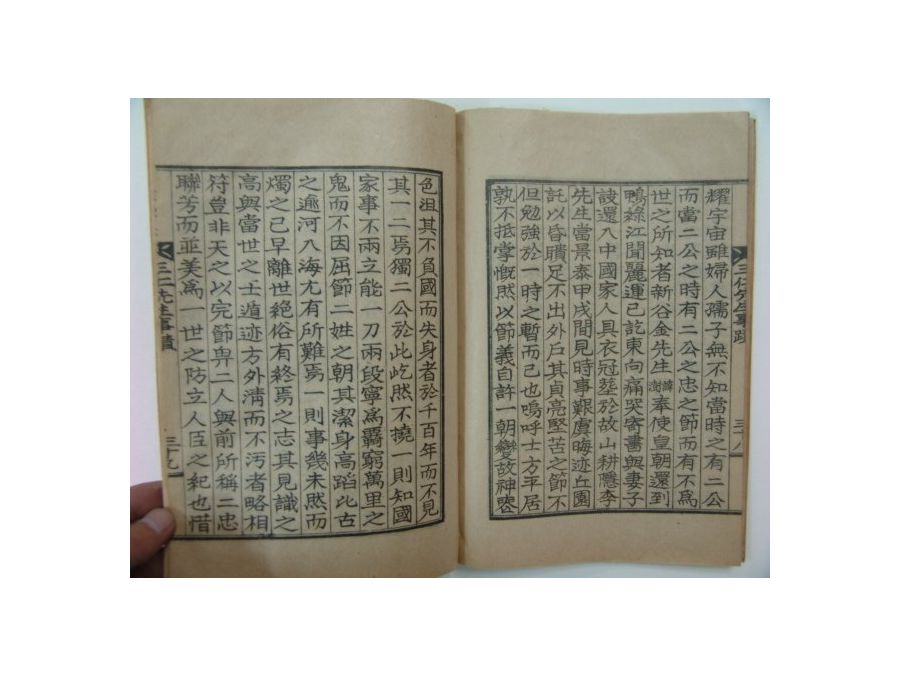 三仁先生事蹟
三十八
耀宇宙雖婦人孺子無不知當時之有二公
而當二公之時有二公之忠之節而有不爲
世之所知者新谷金先生濟澍奉使皇朝還到
鴨綠江聞麗運已訖東向痛哭寄書與妻子
訣還入中國家人具衣冠塟於故山耕隱李
先生當景泰甲戌間見時事艱虞晦迹丘園
託以昏聵足不出外戶其貞亮堅苦之節不
但勉強於一時之暫而已也嗚呼士方平居
孰不抵掌慨然以節義自許一朝變故神喪
色沮其不負國而失身者於千百年而不見
其一二焉獨二公於此屹然不撓一則知國
家事不兩立能一刀兩段寧爲覊窮萬里之
鬼而不因屈節二姓之朝其潔身高蹈比古
之逾河入海尤有所難焉一則事幾未然而
燭之已早離世絶俗有終焉之志其見識之
高與當世之士遁迹方外淸而不汚者略相
符豈非天之以完節畀二人與前所稱二忠
聯芳而並美爲一世之防立人臣之紀也惜
三仁先生事蹟
三十九